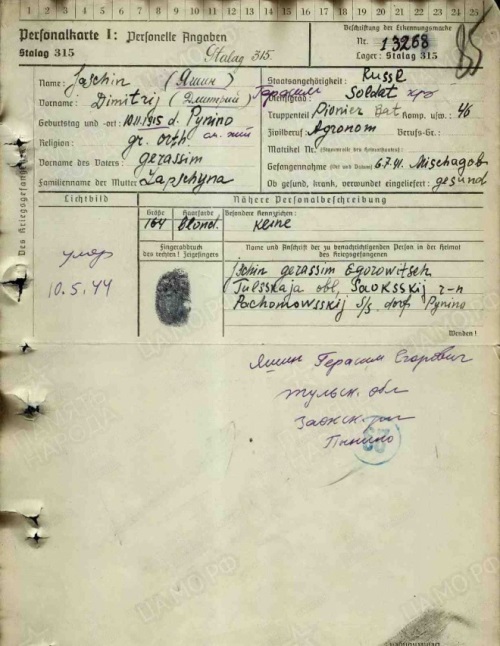 1 2 3 4 5 6 7 8 9 10 11 12 13 14 15 16 17 18 19 20 21 22 23 24 25
Personalkarte I: Personelle Angaben
Beschriftung der Erkennungsmarke
Stalag 315
Stalag 315.
Nr. 13268
Lager: Stalag 315
85
Des Kriegsgefangenen
Name: Jaschin (Яшин)
Staatsangehörigkeit: Russe
Vorname: Dimitrij (Дмитрий) Герасим
Dienstgrad: Soldat
Geburtstag und -ort: 10.11.1915 d. Pynino
Truppenteil: Pionier Bat Komp. usw.: 46
Religion: gr. orth.
Zivilberuf: Agronom Berufs-Gr.:
Vorname des Vaters: Gerassim
Matrikel Nr.
Gefangennahme (Ort und Datum): 6.7.41. Mischagob
Familienname der Mutter: Lapschyna
Ob gesund, krank, verwundet eingeliefert: gesund
Lichtbild
Nähere Personalbeschreibung
Größe Haarfarbe Besondere Kennzeichen:
164 blond. Keine
Fingerabdruck
des rechten! Zeigefingers
Name und Anschrift der zu benachrichtigenden Person in der Heimat
des Kriegsgefangenen
умер
10.5.44
Jschin gerassim Egorowitsch
Tulsskaja obl, Saoksskij r-n
Pachomowsskij s/s. dorf Pynino
Wenden!
Яшин Герасим Егорович
Тульск. обл
Заокск. р-н
Пынино
ЦАМО.РФ